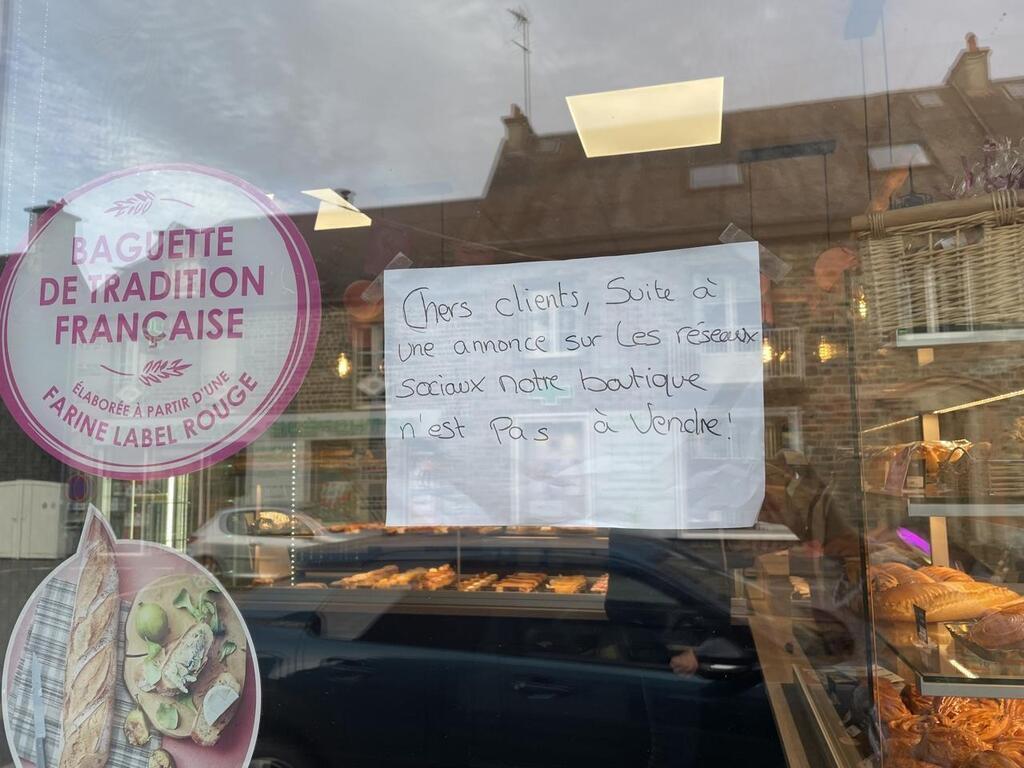 BAGUETTE
DE TRADITION
FRANÇAISE
ÉLABORÉE À PARTIR D'UNE
FARINE LABEL ROUGE
Chers clients, Suite à
une annonce sur les réseaux
sociaux notre boutique
n'est pas à vendre!